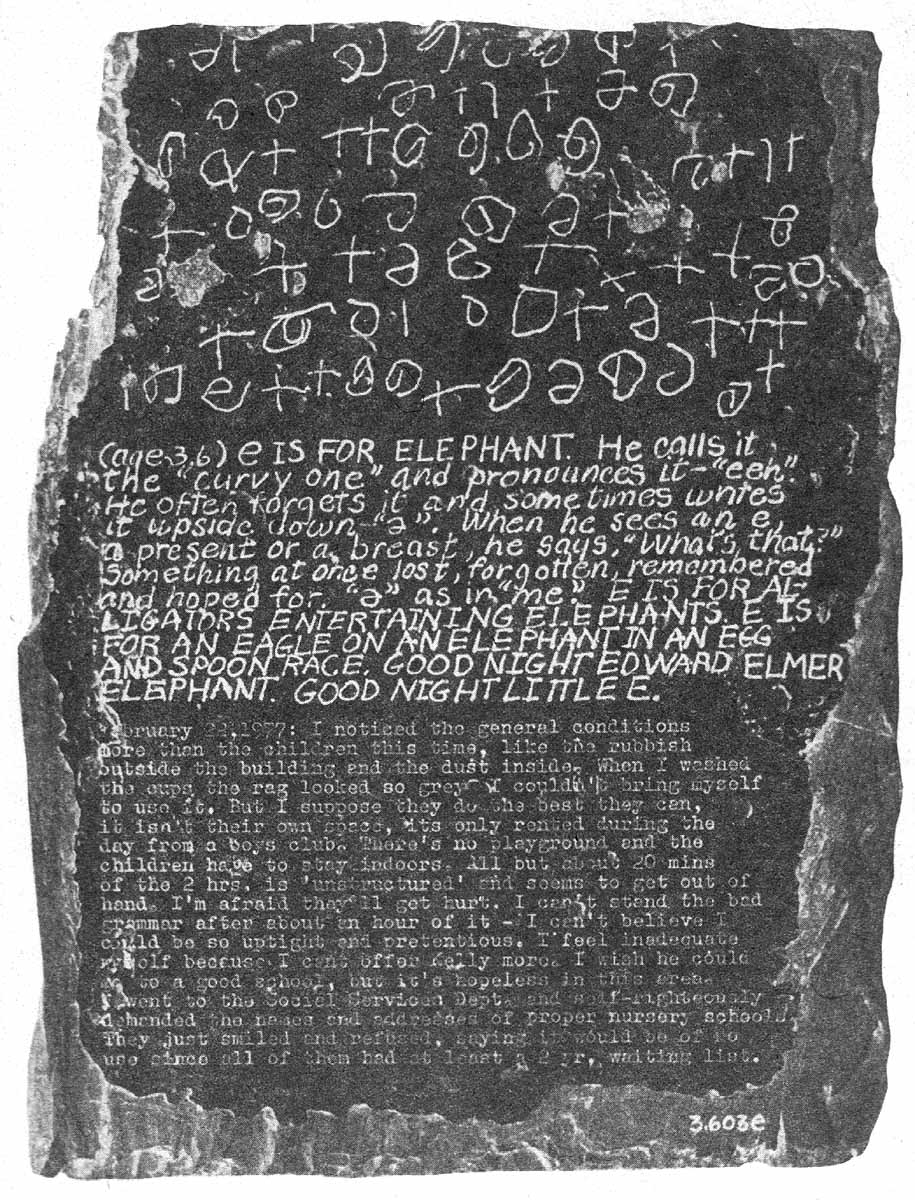 (age 3.6) e IS FOR ELEPHANT. He calls it
the "curvy one" and pronounces it - "eeh".
He often forgets it and sometimes writes
it upside down "ə". When he sees an e,
a present or a breast, he says, "What's that?"
Something at once lost, forgotten, remembered
and hoped for. "ə" as in "me". E IS FOR AL-
LIGATORS ENTERTAINING ELEPHANTS. E IS
FOR AN EAGLE ON AN ELEPHANT IN AN EGG
AND SPOON RACE. GOOD NIGHT EDWARD ELMER
ELEPHANT. GOOD NIGHT LITTLE E.
February 1977: I noticed the general conditions
more than the children this time, like the rubbish
outside the building and the dust inside. When I washed
the cups the rag looked so grey I couldn't bring myself
to use it. But I suppose they do the best they can,
it isn't their own space, its only rented during the
day from a boys club. There's no playground and the
children have to stay indoors. All but about 20 mins
of the 2 hrs. is 'unstructured' and seems to get out of
hand. I'm afraid they'll get hurt. I can't stand the bad
grammar after about an hour of it - I can't believe I
could be so uptight and pretentious. I feel inadequate
myself because I cant offer Kelly more. I wish he could
go to a good school, but it's hopeless in this area.
I went to the Social Services Dept. and self-righteously
demanded the names and addresses of proper nursery schools.
They just smiled and refused, saying it would be of no
use since all of them had at least a 2 yr. waiting list.
3.603e